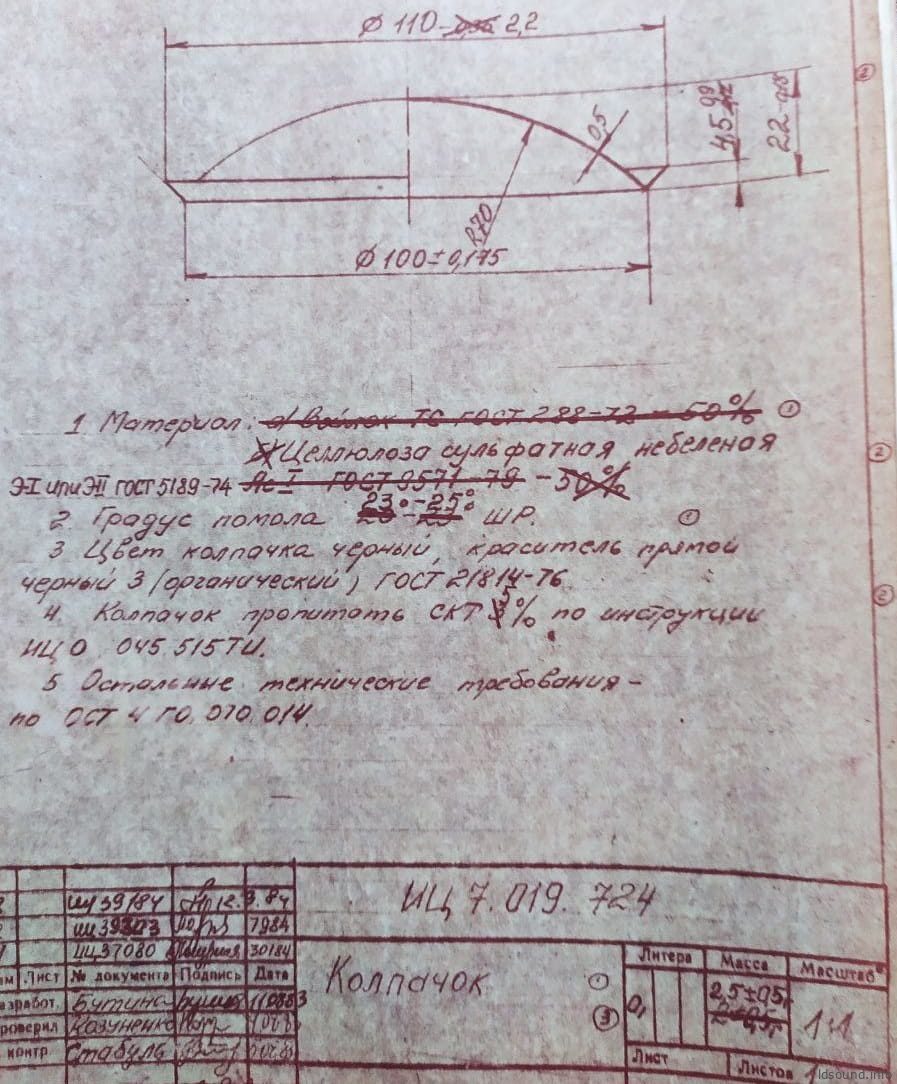 Ø 110 2,2
0,5
4,5
22-0,8
R70
Ø 100±0,175
1 Материал: а) Войлок ТС ГОСТ 288-72 - 50% ①
Целлюлоза сульфатная небеленая
Э-I или Э-II ГОСТ 5189-74 ГОСТ 9571-79 - 50%
23°-25°
2. Градус помола ШР. ①
3 Цвет колпачка черный, краситель прямой
черный 3 (органический) ГОСТ 21814-76
4. Колпачок пропитать СКТ % по инструкции
ИЦ0.045.515ТИ.
5 Остальные технические требования -
по ОСТ 4 ГО.070.014.
②
②
②
ИЦ 7.019.724
ИЦ 39184 84
7984
ИЦ 37080 30184
Лист № документа Подпись Дата
Бутина
Казуненко
контр Стабуль
Колпачок
①
③
Литера Масса Масштаб
2,5±0,5г
1:1
Лист Листов 1
ldsound.info